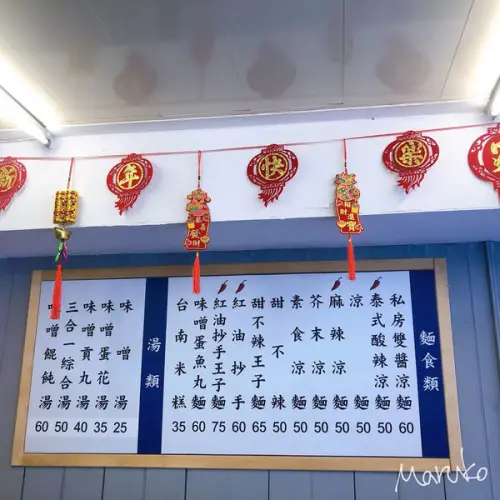 新年快樂
恭喜發財
招財進寶
麵食類
私房雙醬涼麵 60
泰式酸辣涼麵 50
涼麵 40
麻辣涼麵 50
芥末涼麵 50
素食涼麵 50
甜不辣 50
甜不辣王子麵 65
紅油抄手 60
紅油抄手王子麵 75
味噌蛋魚丸麵 60
台南米糕 35
湯類
味噌湯 25
味噌蛋花湯 35
味噌貢丸湯 40
三合一綜合湯 50
味噌餛飩湯 60
Maruko